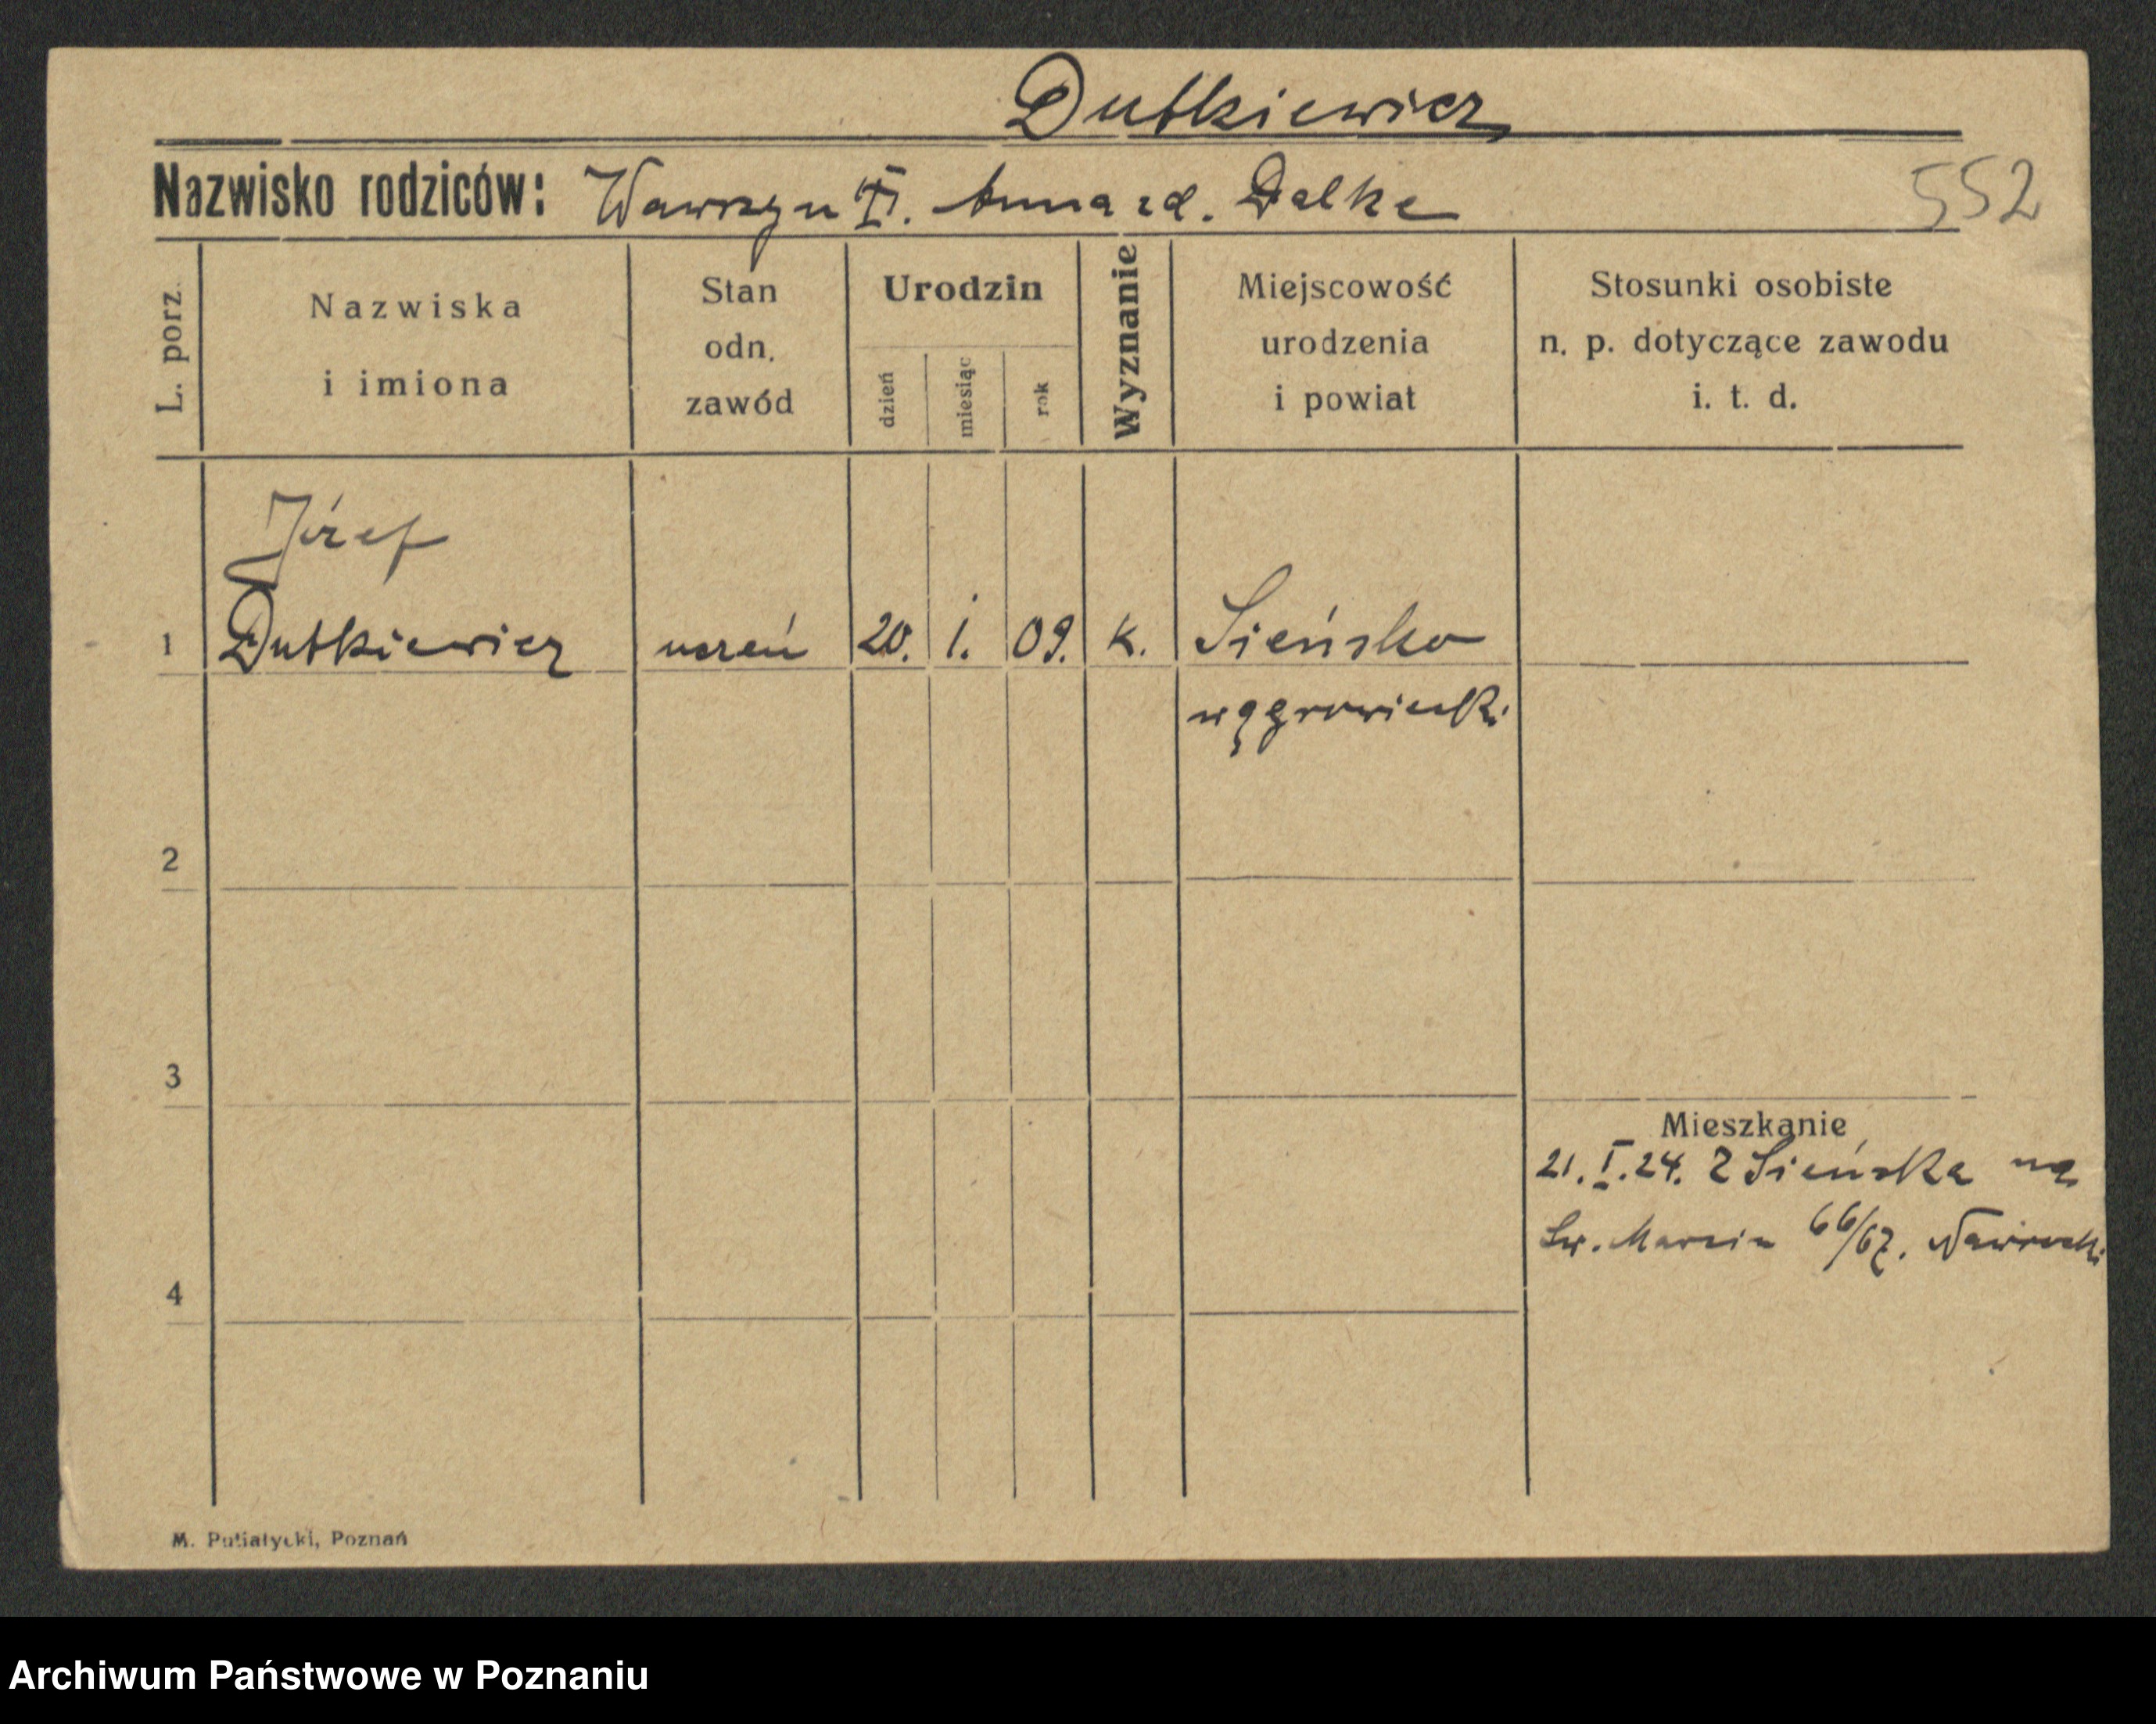 Dutkiewicz
Nazwisko rodziców: Wawrzyn i Anna zd. Dalke
552
L. porz. Nazwiska i imiona Stan odn. zawód Urodzin dzień miesiąc rok Wyznanie Miejscowość urodzenia i powiat Stosunki osobiste n. p. dotyczące zawodu i. t. d.
Józef
1 Dutkiewicz uczeń 20. 1. 09. k. Sieńsko
wągrowiecki
2
3
Mieszkanie
21.I.24. z Sieńska na
Św. Marcin 66/67. Nawrocki
4
M. Putiatycki, Poznań
Archiwum Państwowe w Poznaniu